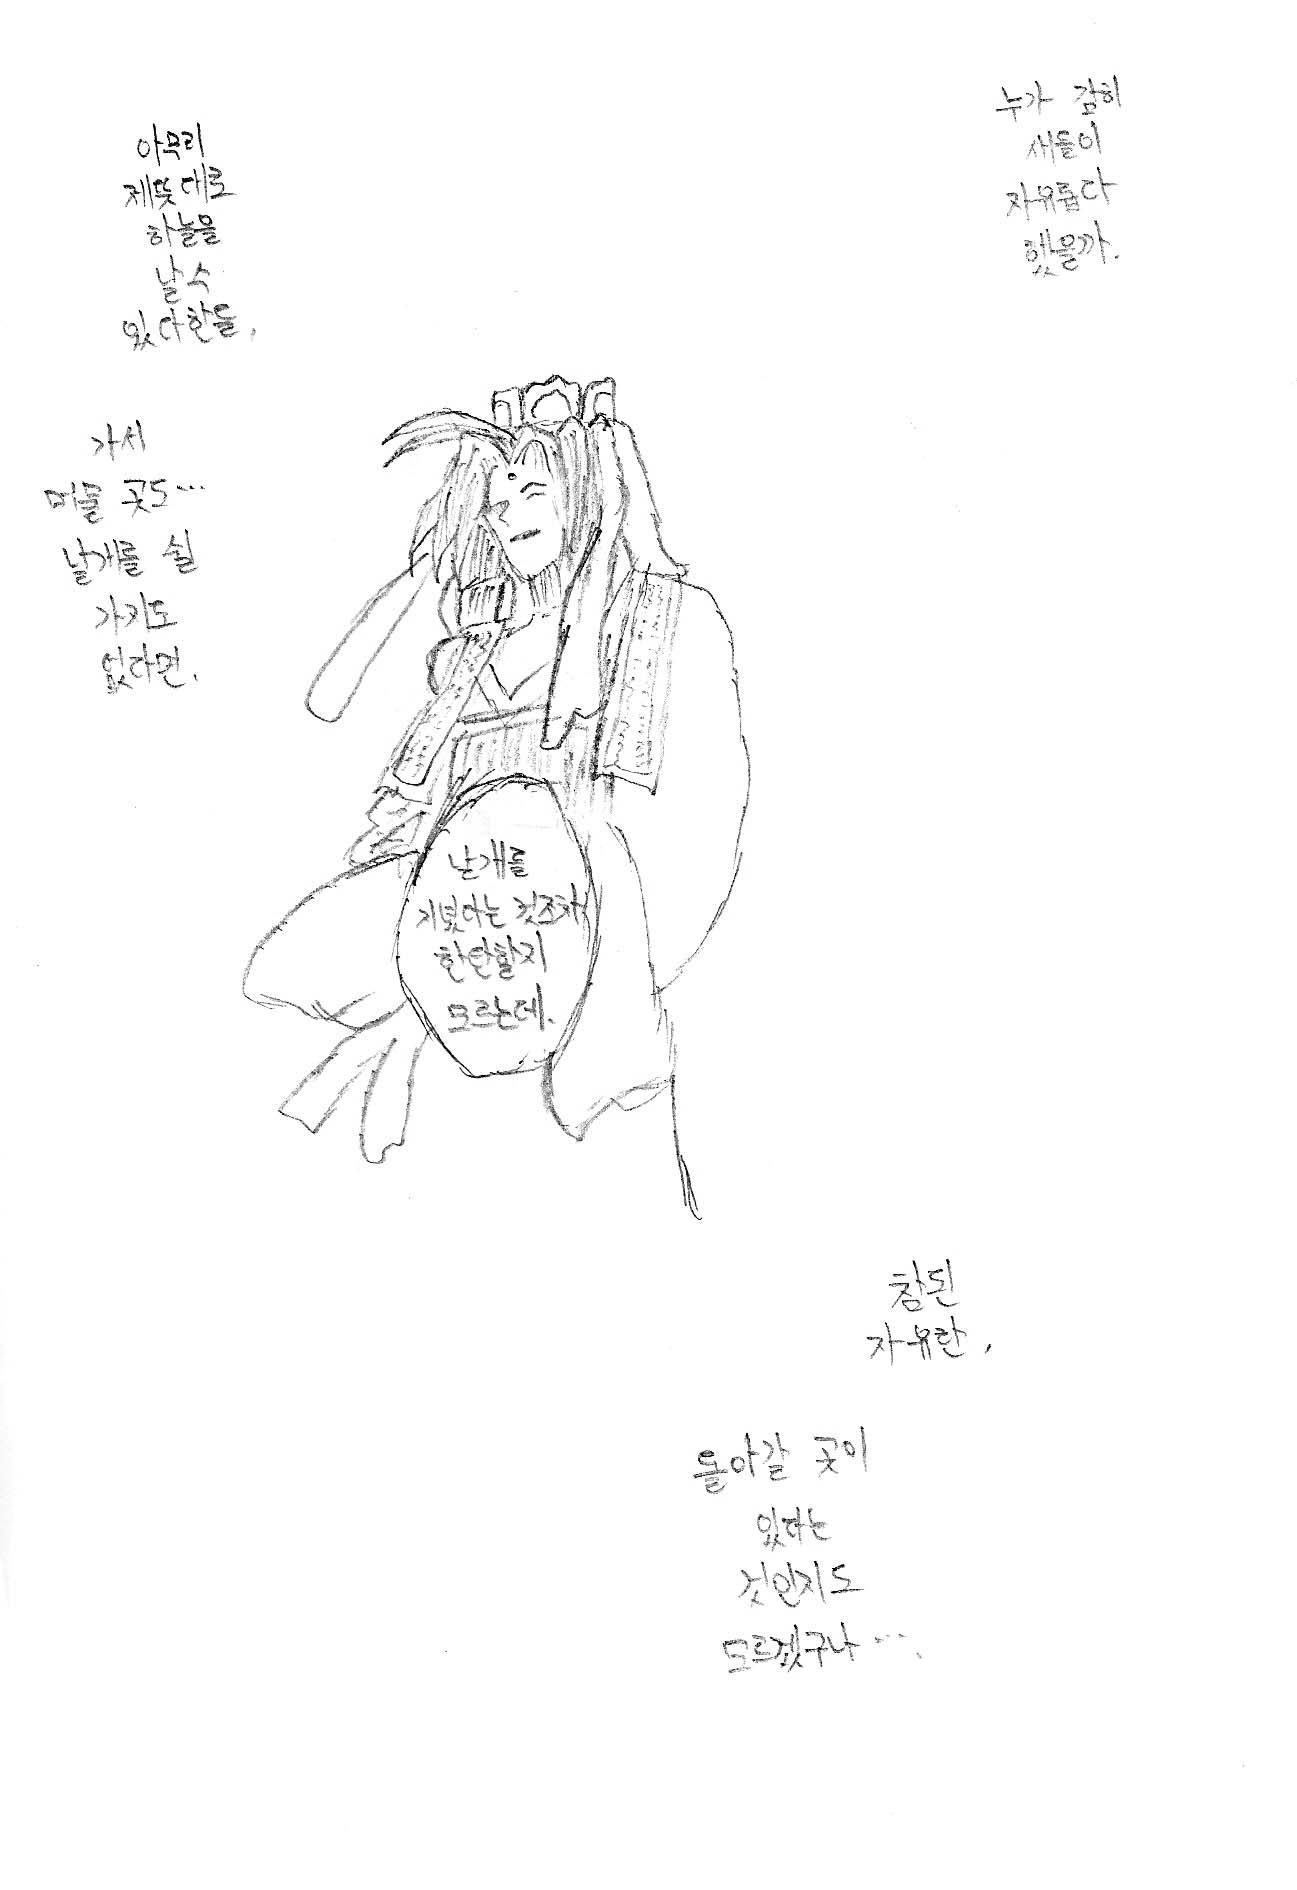 누가 감히
새들이
자유롭다
했을까.
아무리
제뜻대로
하늘을
날 수
있다한들,
가서
머물 곳도…
날개를 쉴
가지도
없다면.
날개를
지녔다는 것조차
한탄할지
모르는데.
참된
자유란,
돌아갈 곳이
있다는
것인지도
모르겠구나….